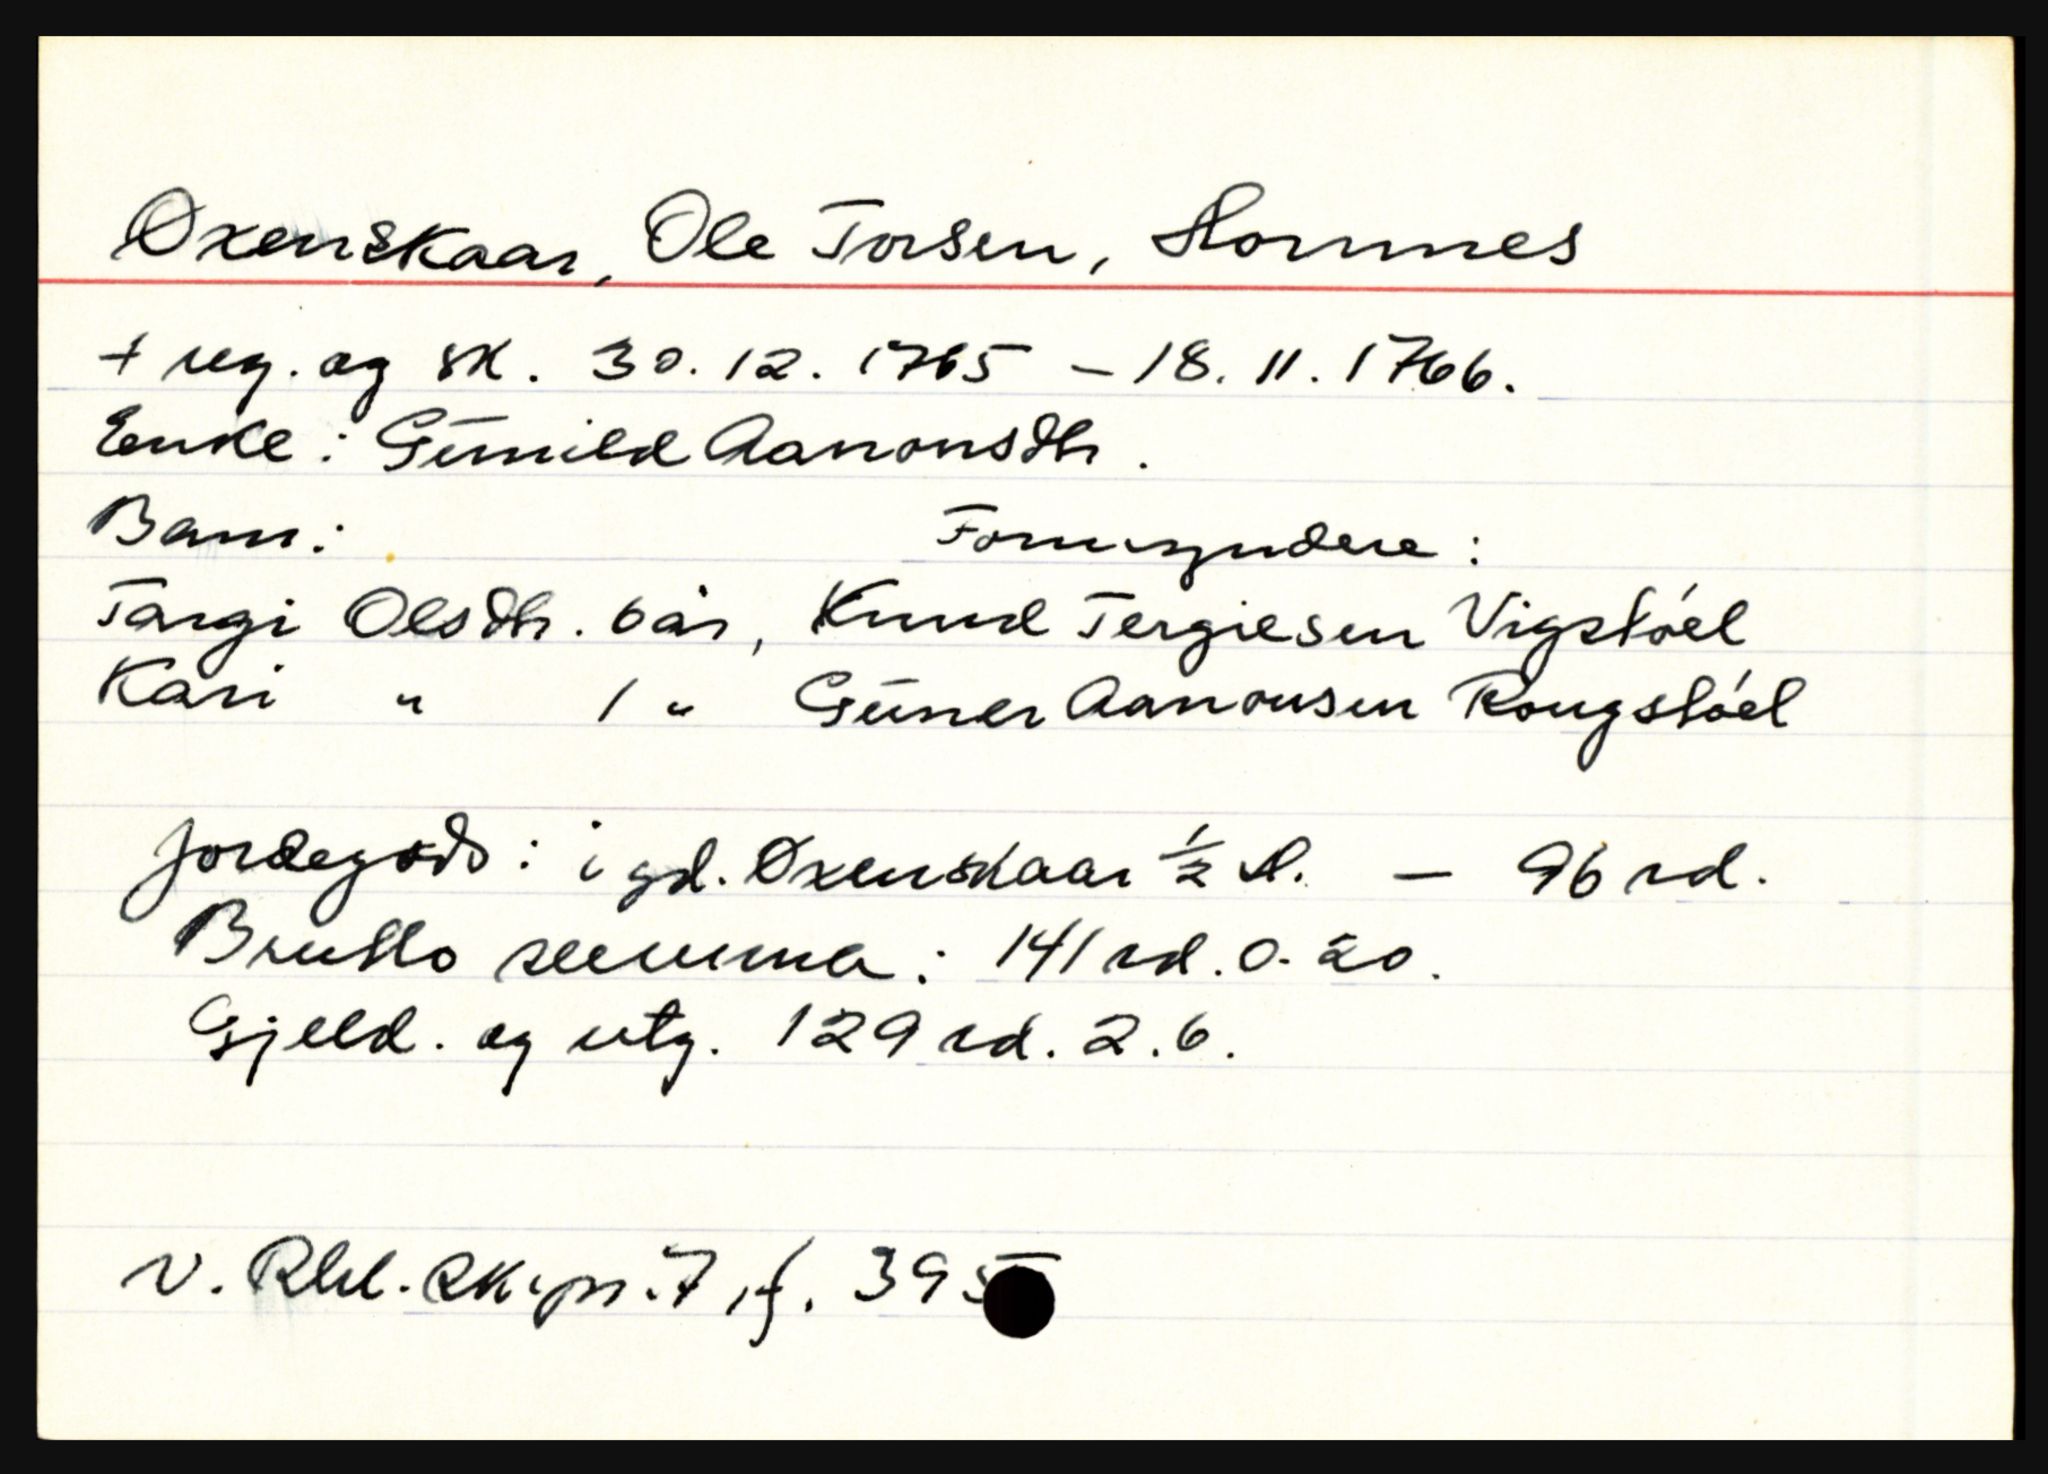 Øxenskaar, Ole Torsen, Hornnes
+ reg. og sk. 30.12.1765 - 18.11.1766.
Enke: Günnild Aanonsdtr.
Barn: Formyndere:
Targi Olsdtr. 6 år, Knud Tergiesen Vigstóel
Kari " 1 " Güner Aanonsen Rougstóel
Jordegods: i gd. Øxenskaar 1/2 H. - 96 rd.
Brutto summa: 141 rd. 0. 20.
Gjeld. og utg. 129 rd. 2. 6.
V. Rbl. sk.pr. 7, f. 395